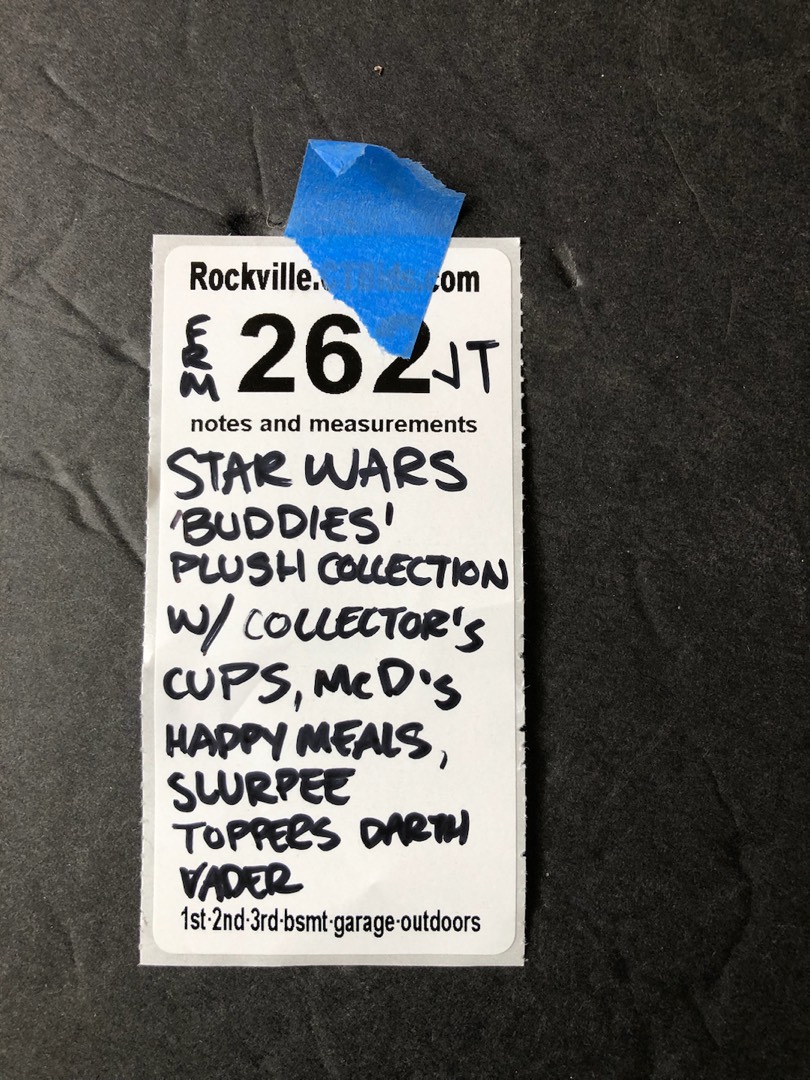 Rockville.GTBids.com
FRM 262 JT
notes and measurements
STAR WARS
'BUDDIES'
PLUSH COLLECTION
W/ COLLECTOR'S
CUPS, McD'S
HAPPY MEALS,
SLURPEE
TOPPERS DARTH
VADER
1st·2nd·3rd·bsmt·garage·outdoors